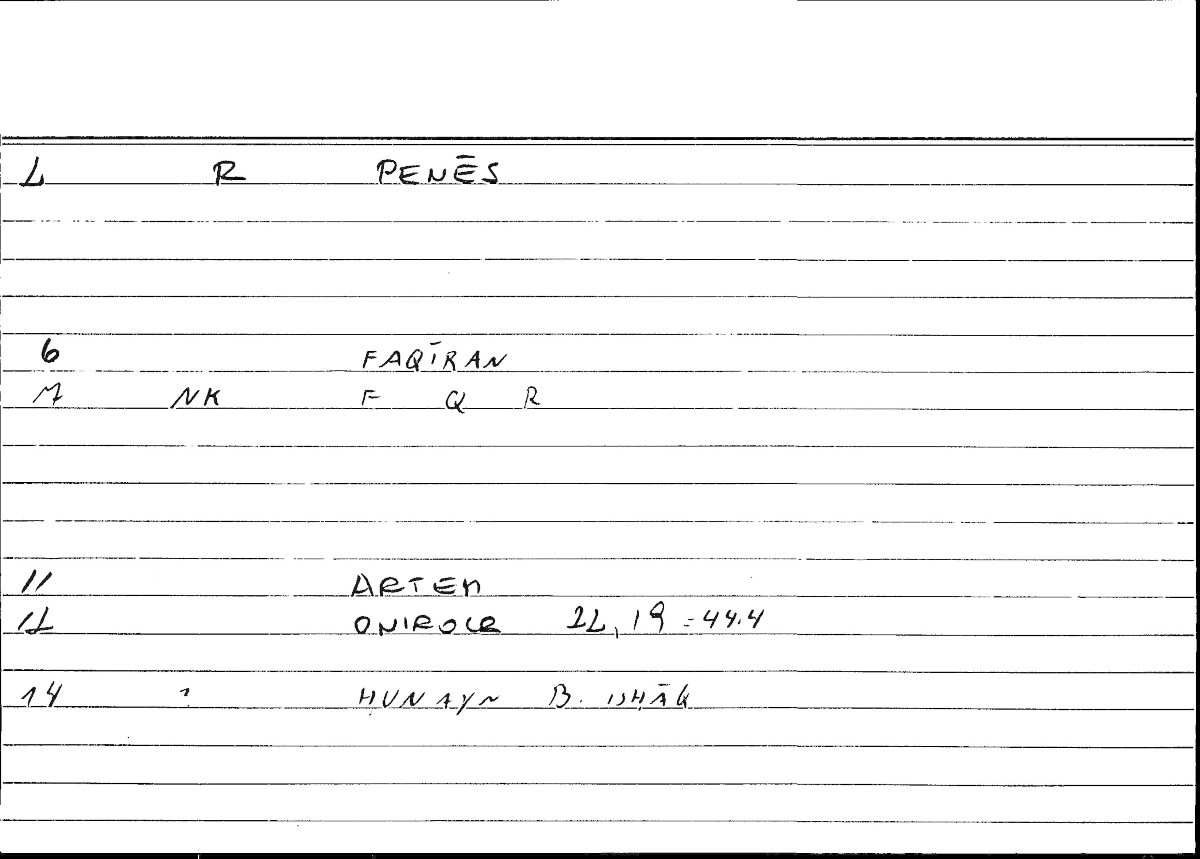 2 R PENĒS
6 FAQĪRAN
7 NK F Q R
11 ARTEM
12 ONIROCR 22,19 = 44.4
14 ? ḤUNAYN B. ISHĀQ